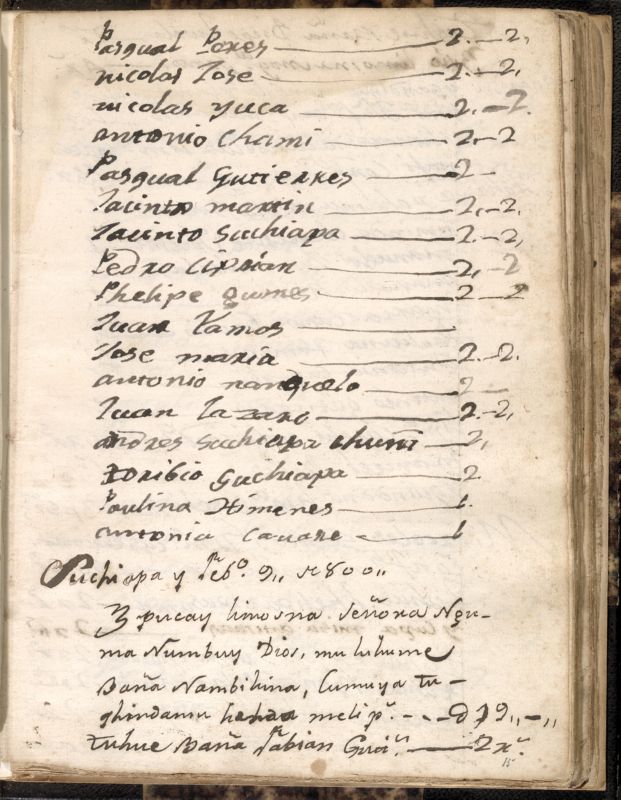 Pasqual Peres 2.-2,
nicolas Jose 2.-2,
nicolas yuca 2.-2.
antonio chami 2,-2
Pasqual Gutierres 2-
Jacinto martin 2,-2.
Jacinto Suchiapa 2.-2,
Pedro Ciprian 2,-2
Phelipe gumes 2-2
Juan Ramos
Jose maria 2.-2.
antonio nanguelo 2-
Juan Lazaro 2-2,
andres Suchiapa chumi 2,
toribio Suchiapa 2
Paulina Ximenes 1.
antonia 1
Suchiapa y feb.o 9,, 1800,,
pucay limosna Señora Nom-
ma Numbuy Dios, mu luhume
Daña Nambihina, Cumuya tu-
ghindamu melip.
tuhue Daña Fabian 2